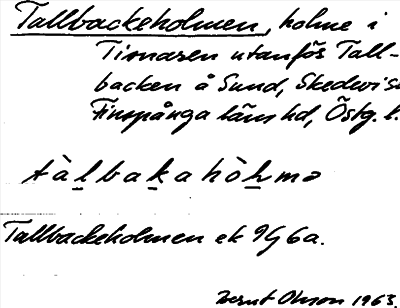 Tallbackeholmen, holme i
Tisnaren utanför Tall-
backen å Sund, Skedevi s
Finspånga läns hd, Östg. l.
tàlbakahòlmə
Tallbackeholmen ek 9G6a.
Bernt Olsson 1963.